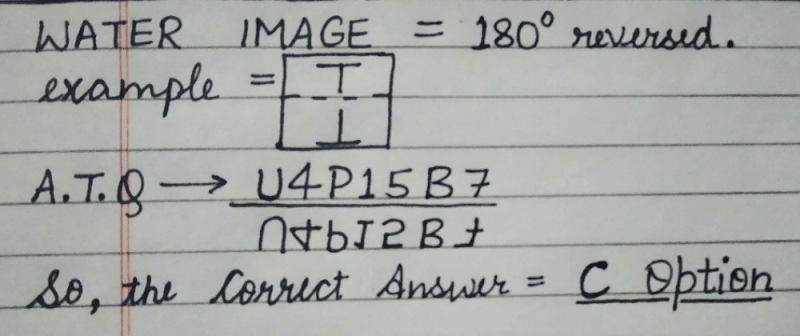 WATER IMAGE = 180° reversed.
example = T
A.T.Q → U4P15B7
So, the Correct Answer = C Option